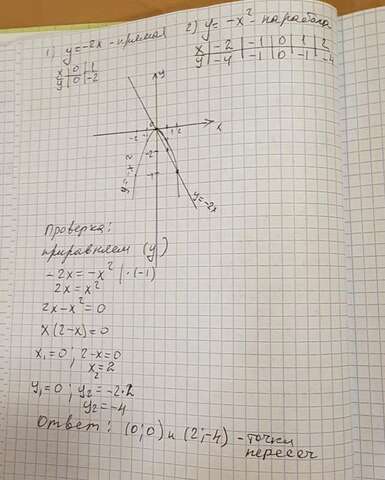 1) y = -2x - прямая
x | 0 | 1
y | 0 | -2
2) y = -x² - парабола
x | -2 | -1 | 0 | 1 | 2
y | -4 | -1 | 0 | -1 | -4
y
0
-2 -1 1 2
x
-2
y=-x²
y=-2x
Проверка:
приравняем (y)
-2x = -x² | ·(-1)
2x = x²
2x - x² = 0
x(2-x)=0
x₁=0; 2-x=0
x₂=2
y₁=0; y₂=-2·2
y₂=-4
Ответ: (0;0) и (2;-4) - точки
пересеч